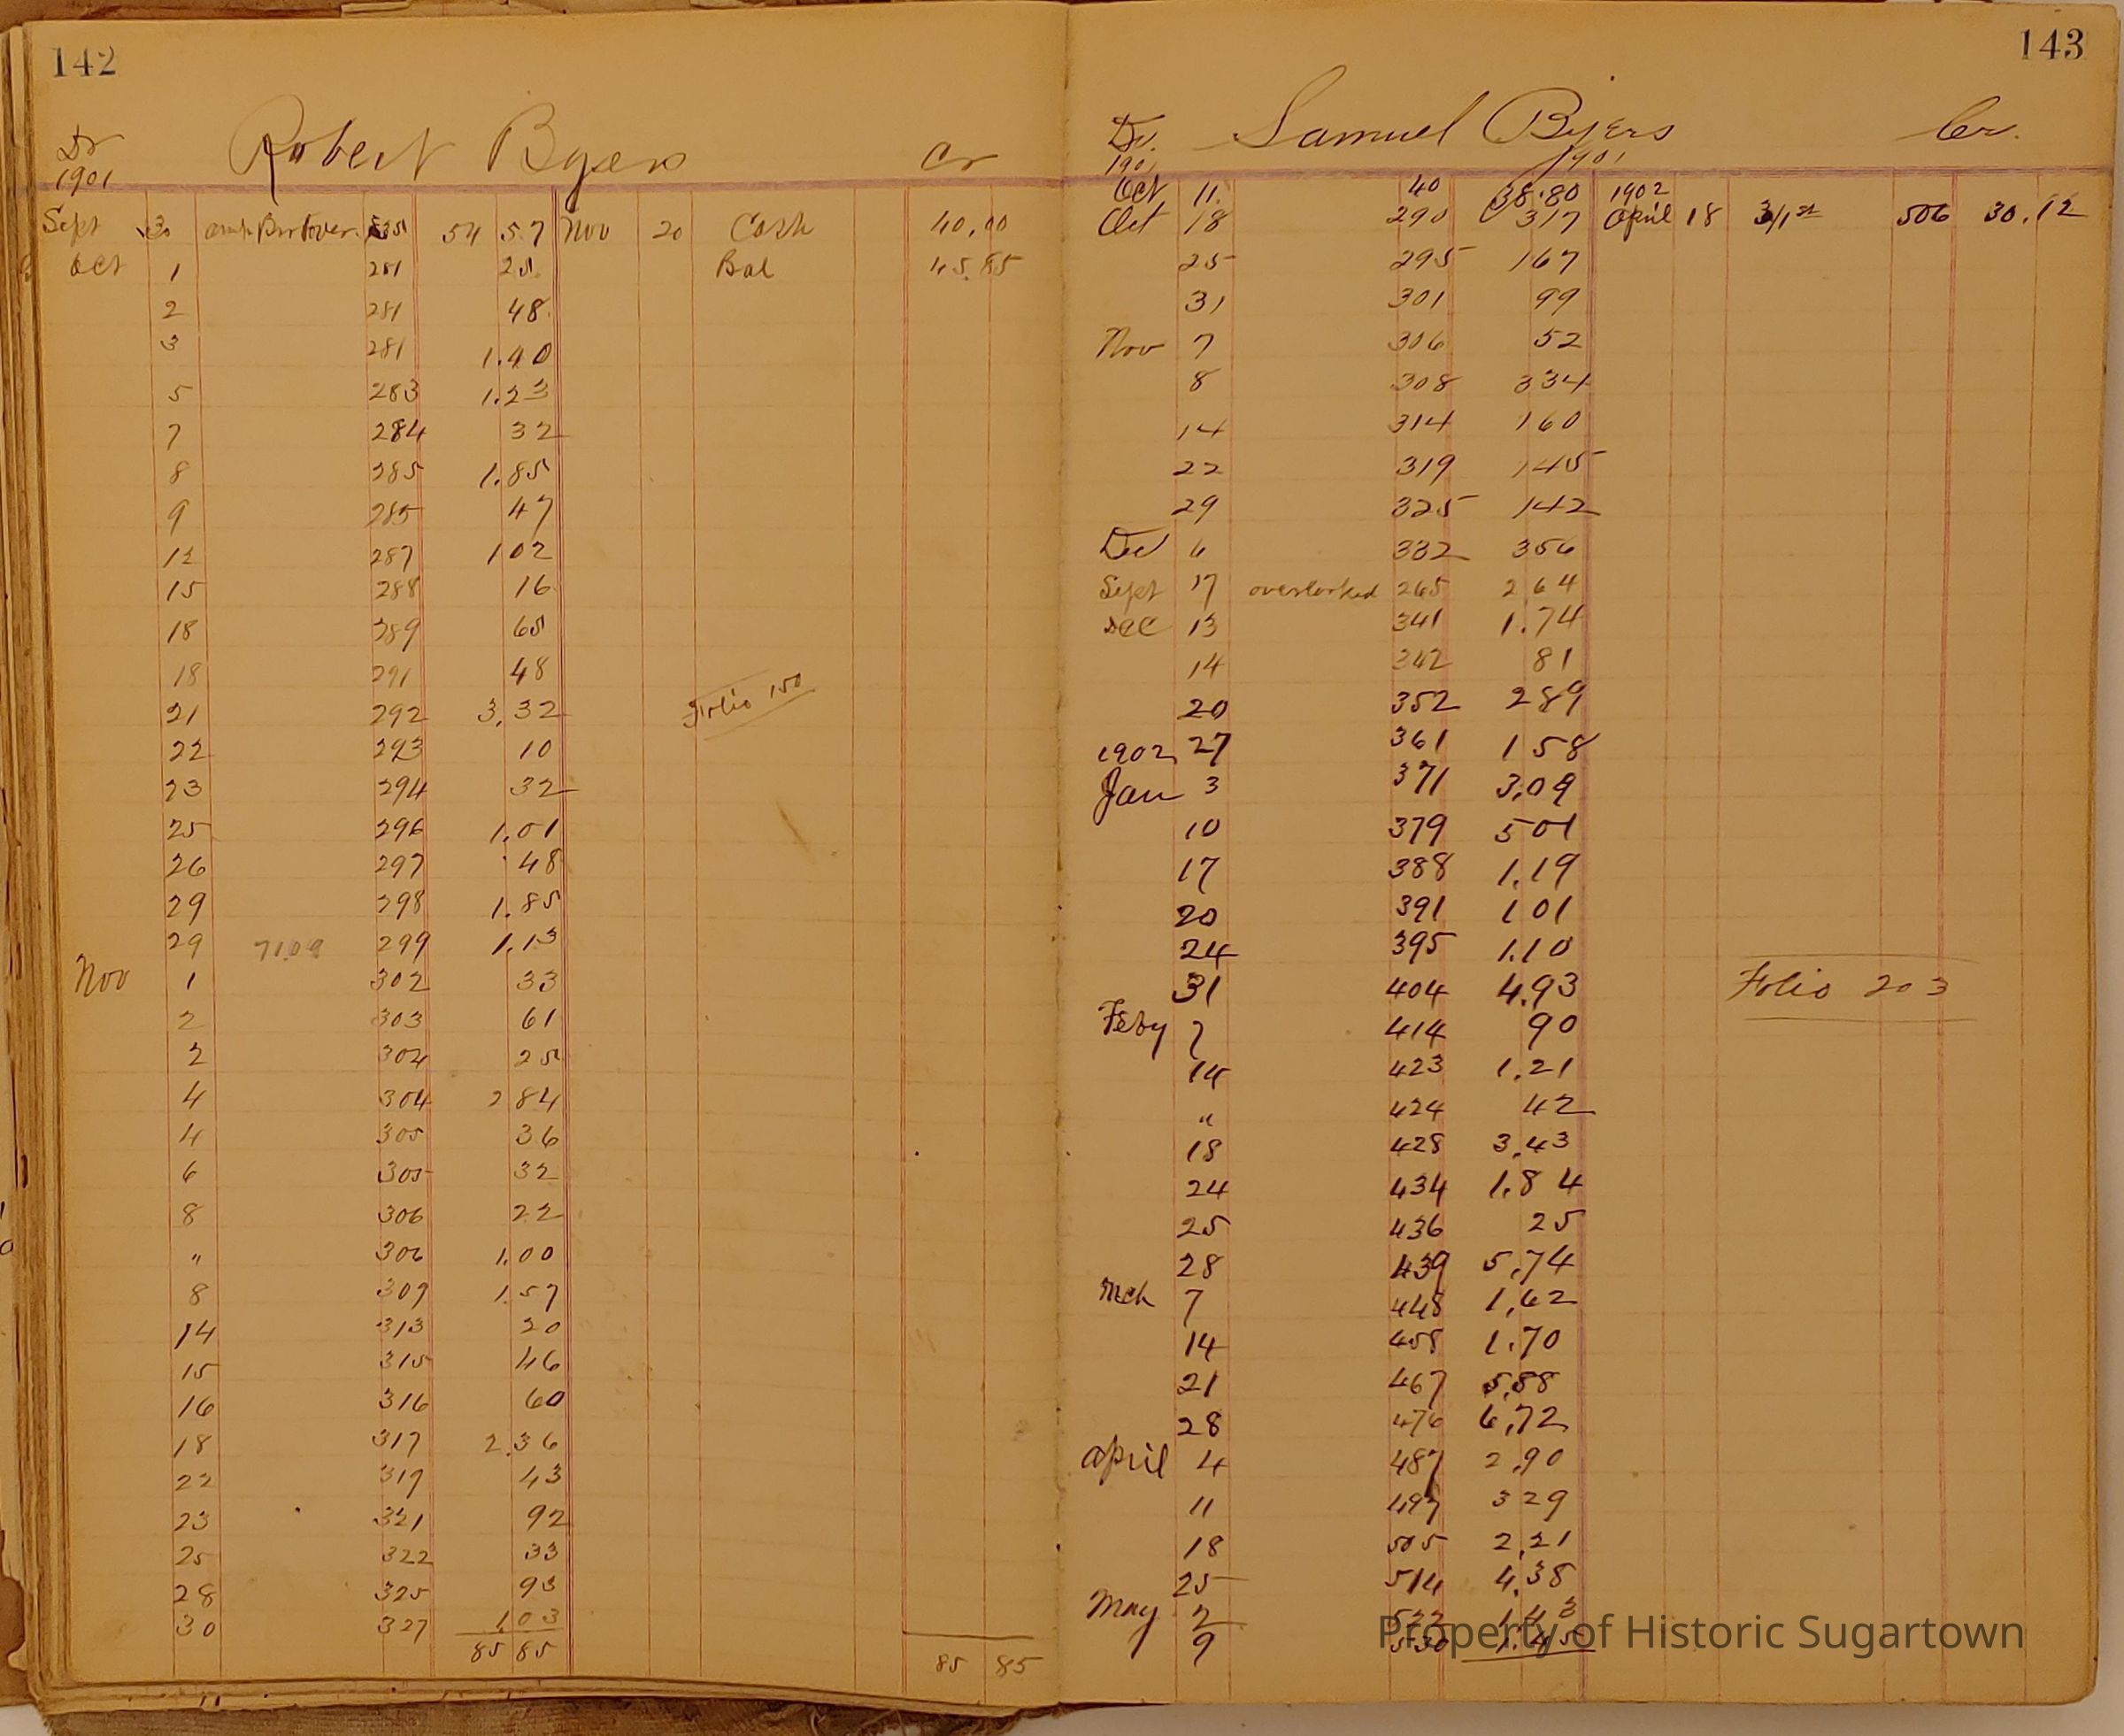 142
Robert Byers
Dr Cr
1901
Sept 30 54 57 Nov 20 Cash 40.00
Oct 1 281 25 Bal 45.85
2 281 48
3 281 1.40
5 283 1.23
7 284 32
8 285 1.85
9 285 47
12 287 102
15 288 16
18 289 65
18 291 48
21 292 3.32 Folio 150
22 293 10
23 294 32
25 296 1.01
26 297 48
29 298 1.85
29 71.09 299 1.13
Nov 1 302 33
2 303 61
2 304 25
4 304 2 84
4 305 36
6 305 32
8 306 22
" 306 1.00
8 309 1.57
14 313 20
15 315 46
16 316 60
18 317 2.36
22 319 43
23 321 92
25 322 33
28 325 93
30 327 1.03
85 85 85 85
143
Dr. Samuel Byers Cr.
1901 1901
Oct 11 40 38.80 1902
Oct 18 290 317 April 18 506 30.12
25 295 167
31 301 99
Nov 7 306 52
8 308 334
14 314 160
22 319 145
29 325 142
Dec 6 332 356
Sept 17 overlooked 265 2 64
Dec 13 341 1.74
14 342 81
20 352 289
1902 27 361 1 58
Jan 3 371 3.09
10 379 501
17 388 1.19
20 391 1 01
24 395 1.10
31 404 4.93 Folio 203
Feby 7 414 90
14 423 1.21
" 424 42
18 428 3.43
24 434 1.84
25 436 25
28 439 5.74
Mch 7 448 1.62
14 458 1.70
21 467 5.88
28 476 6.72
April 4 487 2.90
11 497 3 29
18 505 2.21
25 514 4.38
May 2 522 1.43
9 530 1.45
Property of Historic Sugartown